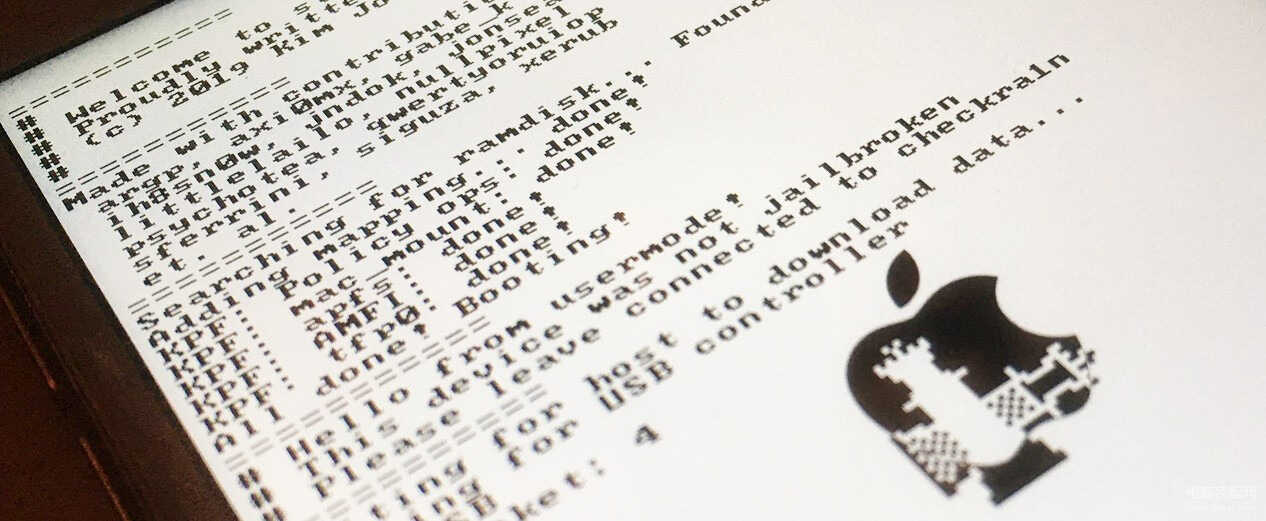 ==============
# Welcome to
# Proudly
# (c) 2019 Kim Jo
#
==================
Made with
argp, axi0mx, gabe_k
ih8sn0w, jndok, jonsea
littlelailo, nullpixel
psychotea, qwertyoruiop
sferrini, siguza, xerub
et. al.
==================
Searching for ramdisk... Foun
Adding mappings... done!
KPF: Policy ops: done!
KPF: mac_mount: done!
KPF: apfs: done!
KPF: AMFI: done!
KPF: tfp0: done!
All done! Booting!
==================
# Hello from usermode!
# This device was not jailbroken
# Please leave connected to checkra1n
==================
ting for host to download data...
ting for USB controller
SB
ket: 4